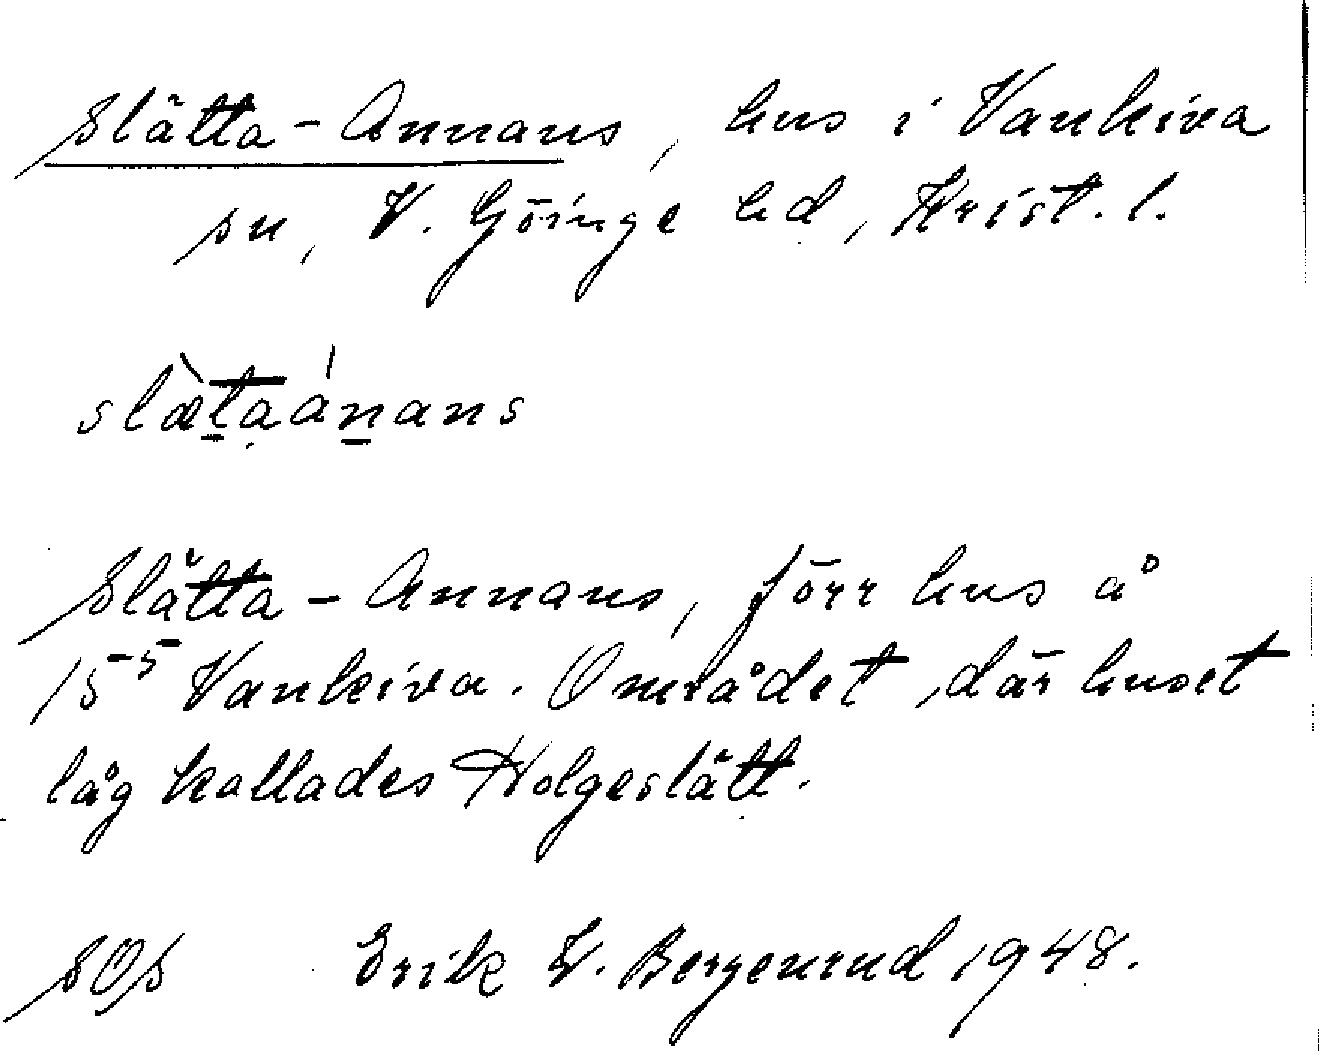 Slätta-Annans, hus i Vankiva
sn, V. Göinge hd, Krist. l.
slæ̀taánans
Slätta-Annans, förr hus å
15-5 Vankiva. Området, där huset
låg kallades Holgeslätt.
SOS Erik W. Bergenrud 1948.